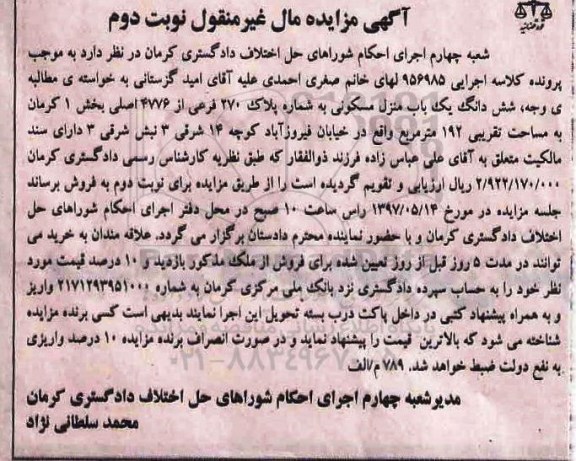 آگهی مزایده مال غیرمنقول نوبت دوم
شعبه چهارم اجرای احکام شوراهای حل اختلاف دادگستری کرمان در نظر دارد به موجب
پرونده کلاسه اجرایی ۹۵۶۹۸۵ لهای خانم صغری احمدی علیه آقای امید گزستانی به خواسته ی مطالبه
ی وجه، شش دانگ یک باب منزل مسکونی به شماره پلاک ۲۷۰ فرعی از ۴۷۷۶ اصلی بخش ۱ کرمان
به مساحت تقریبی ۱۹۲ مترمربع واقع در خیابان فیروزآباد کوچه ۱۴ شرقی ۳ نبش شرقی ۳ دارای سند
مالکیت متعلق به آقای علی عباس زاده فرزند ذوالفقار که طبق نظریه کارشناس رسمی دادگستری کرمان
۲/۹۲۲/۱۷۰/۰۰۰ ریال ارزیابی و تقویم گردیده است را از طریق مزایده برای نوبت دوم به فروش برساند
جلسه مزایده در مورخ ۱۳۹۷/۰۵/۱۴ راس ساعت ۱۰ صبح در محل دفتر اجرای احکام شوراهای حل
اختلاف دادگستری کرمان و با حضور نماینده محترم دادستان برگزار می گردد. علاقه مندان به خرید می
توانند در مدت ۵ روز قبل از روز تعیین شده برای فروش از ملک مذکور بازدید و ۱۰ درصد قیمت مورد
نظر خود را به حساب سپرده دادگستری نزد بانک ملی مرکزی کرمان به شماره ۲۱۷۱۲۹۳۹۵۱۰۰۰ واریز
و به همراه پیشنهاد کتبی در داخل پاکت درب بسته تحویل این اجرا نمایند بدیهی است کسی برنده مزایده
شناخته می شود که بالاترین قیمت را پیشنهاد نماید و در صورت انصراف برنده مزایده ۱۰ درصد واریزی
به نفع دولت ضبط خواهد شد. ۷۸۹ م/الف
مدیرشعبه چهارم اجرای احکام شوراهای حل اختلاف دادگستری کرمان
محمد سلطانی نژاد